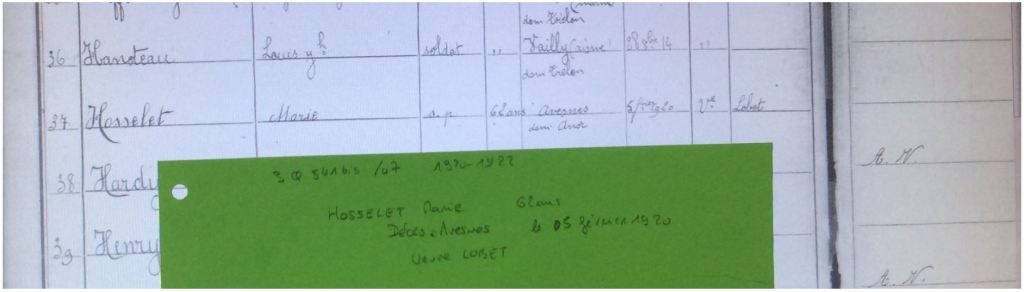 dom Trélon
36 Hanoteau Louis Jh soldat " Vailly (aisne) 28 8bre 14 "
dom Trélon
37 Hosselet Marie s.p 62ans Avesnes 5 fvier 1920 Ve Lobet
dom Anor
A. N.
38 Hardy
3 Q 541 bis /07 1920-1922
HOSSELET Marie 62ans
Décès à Avesnes le 05 février 1920
Veuve LOBET
39 Henry
A. N.